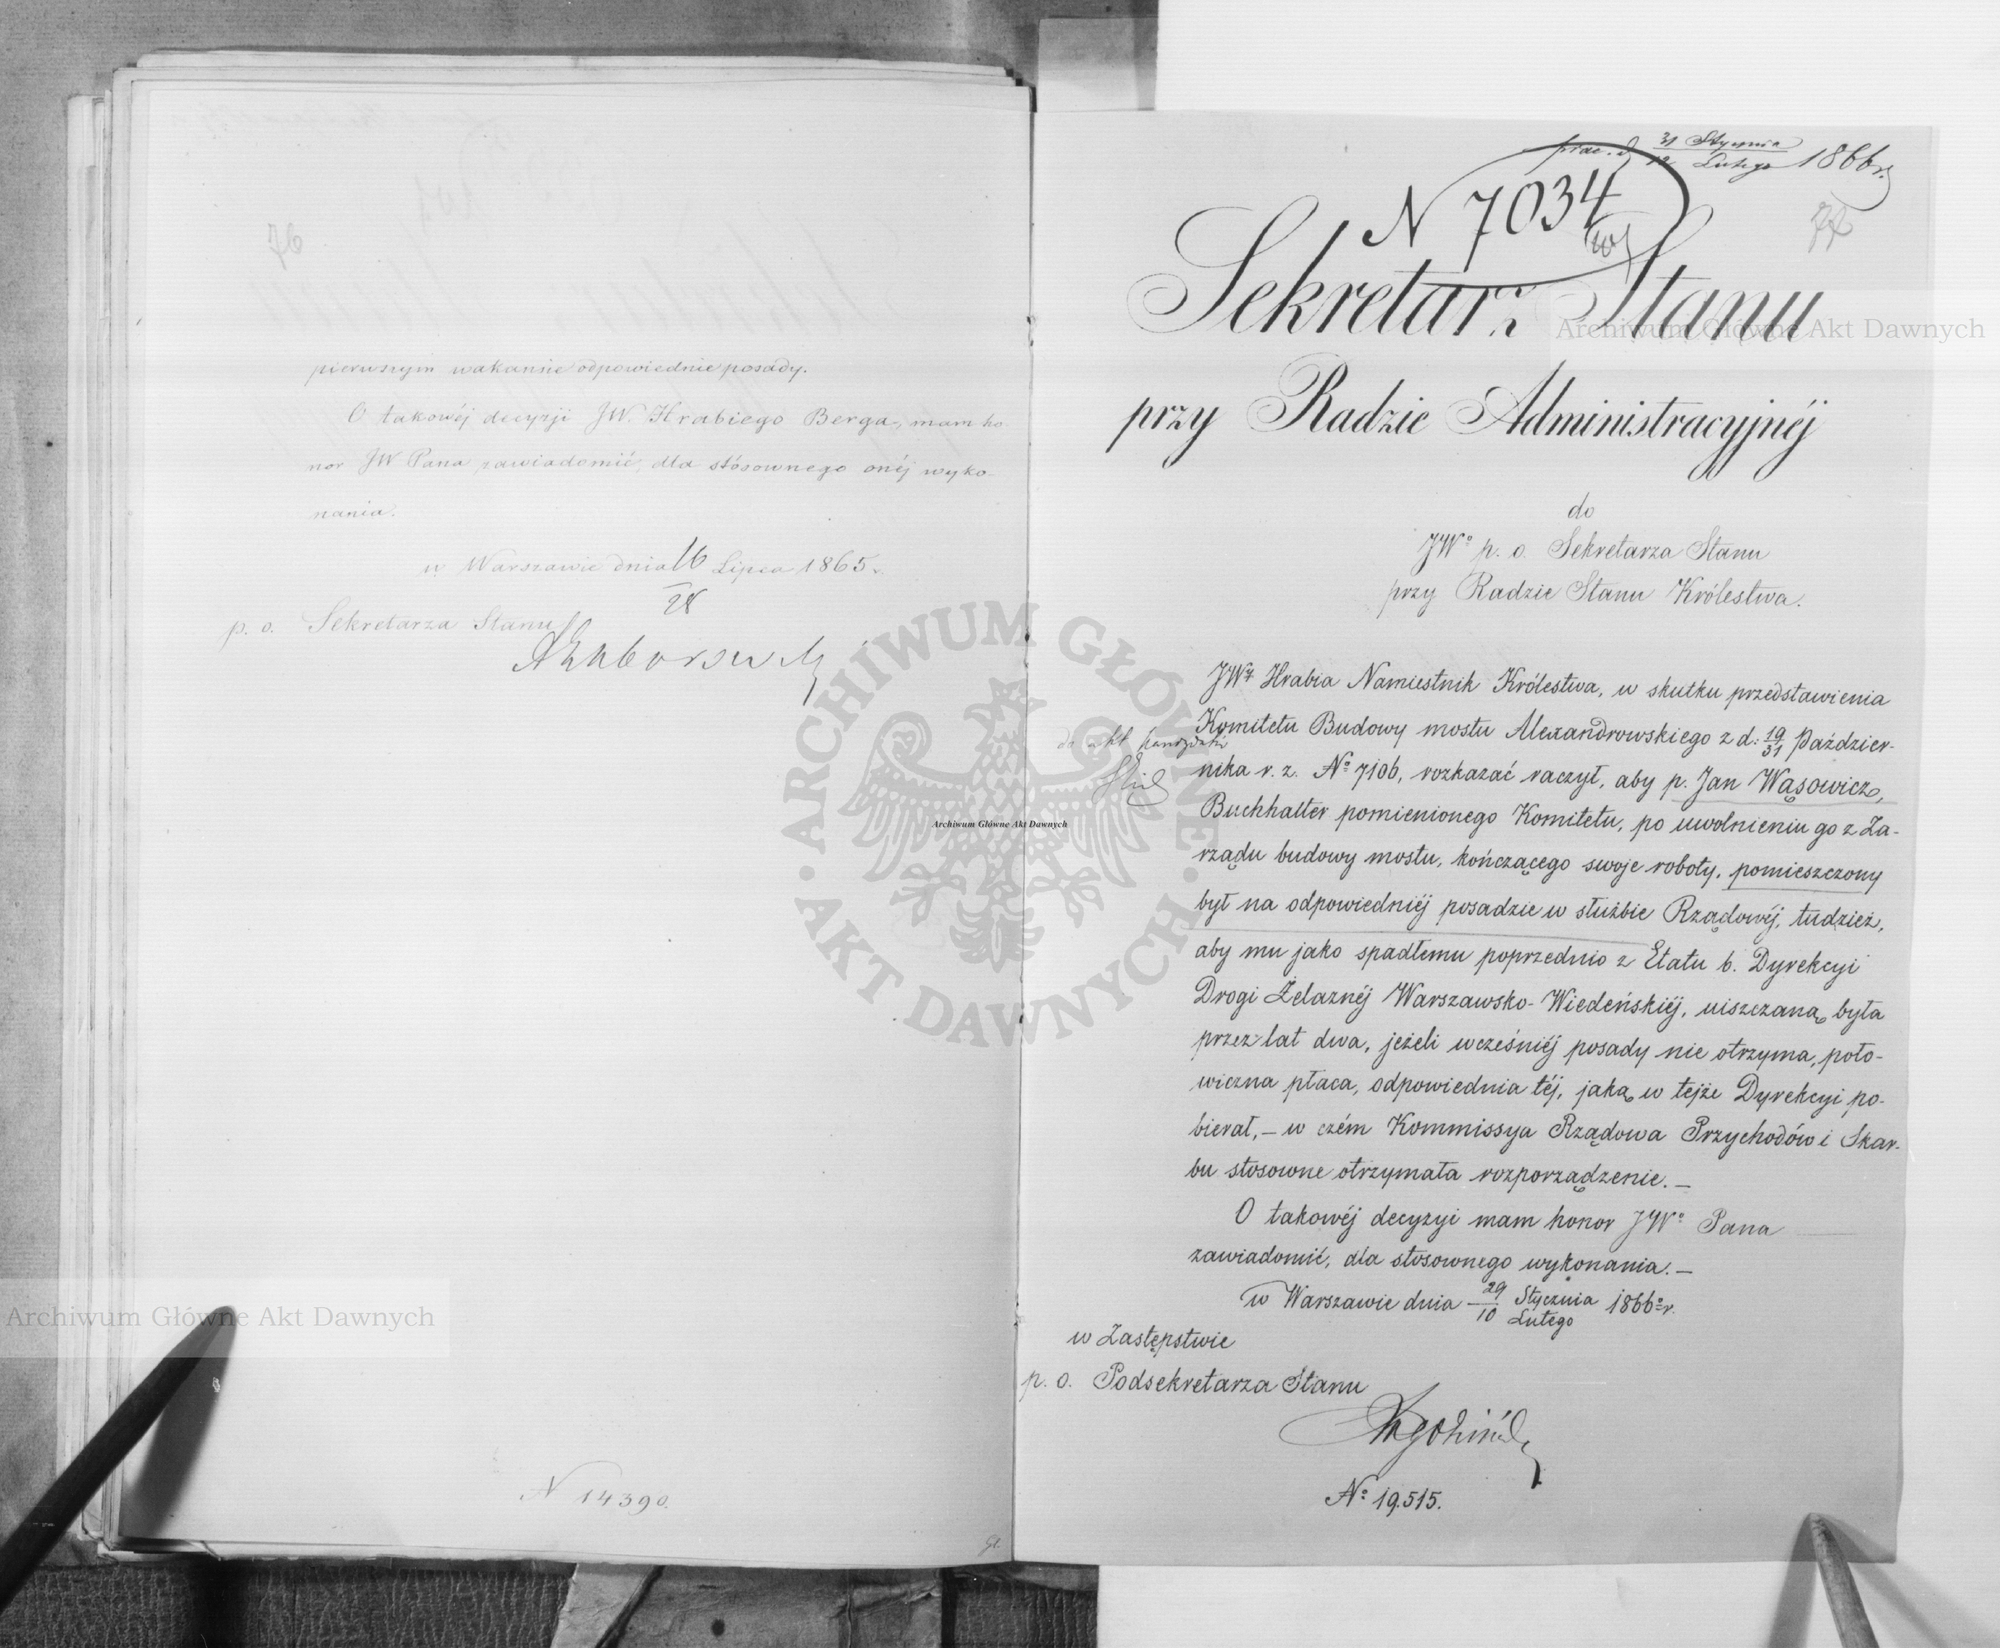 76
pierwszym wakansie odpowiednie posady.
O takowéj decyzji JW. Hrabiego Berga, mam ho-
nor JW Pana zawiadomić, dla stósownego onéj wyko-
nania.
w Warszawie dnia 16/28 Lipca 1865 r.
p. o. Sekretarza Stanu
N 14390.
31 Stycznia
12 Lutego 1866 r.
N 7034
77
Sekretarz Stanu
przy Radzie Administracyjnéj
do
JWº p. o. Sekretarza Stanu
przy Radzie Stanu Królestwa.
JWy Hrabia Namiestnik Królestwa, w skutku przedstawienia
Komitetu Budowy mostu Alexandrowskiego z d: 19/31 Paździer-
nika r. z. Nº 7106, rozkazać raczył, aby p. Jan Wąsowicz,
Buchhalter pomienionego Komitetu, po uwolnieniu go z Za-
rządu budowy mostu, kończącego swoje roboty, pomieszczony
był na odpowiedniéj posadzie w służbie Rządowéj, tudzież,
aby mu jako spadłemu poprzednio z Etatu b. Dyrekcyi
Drogi Żelaznéj Warszawsko-Wiedeńskiéj, uiszczaną była
przez lat dwa, jeżeli wcześniéj posady nie otrzyma, poło-
wiczna płaca, odpowiednia téj, jaką w tejże Dyrekcyi po-
bierał, — w czém Kommissya Rządowa Przychodów i Skar-
bu stosowne otrzymała rozporządzenie. —
O takowéj decyzyi mam honor JWº Pana
zawiadomić, dla stosownego wykonania. —
w Warszawie dnia 29 Stycznia / 10 Lutego 1866º r.
w Zastępstwie
p. o. Podsekretarza Stanu
Nº 19.515.
do akt
Archiwum Główne Akt Dawnych
Archiwum Główne Akt Dawnych
Archiwum Główne Akt Dawnych
· ARCHIWUM GŁÓWNE · AKT DAWNYCH